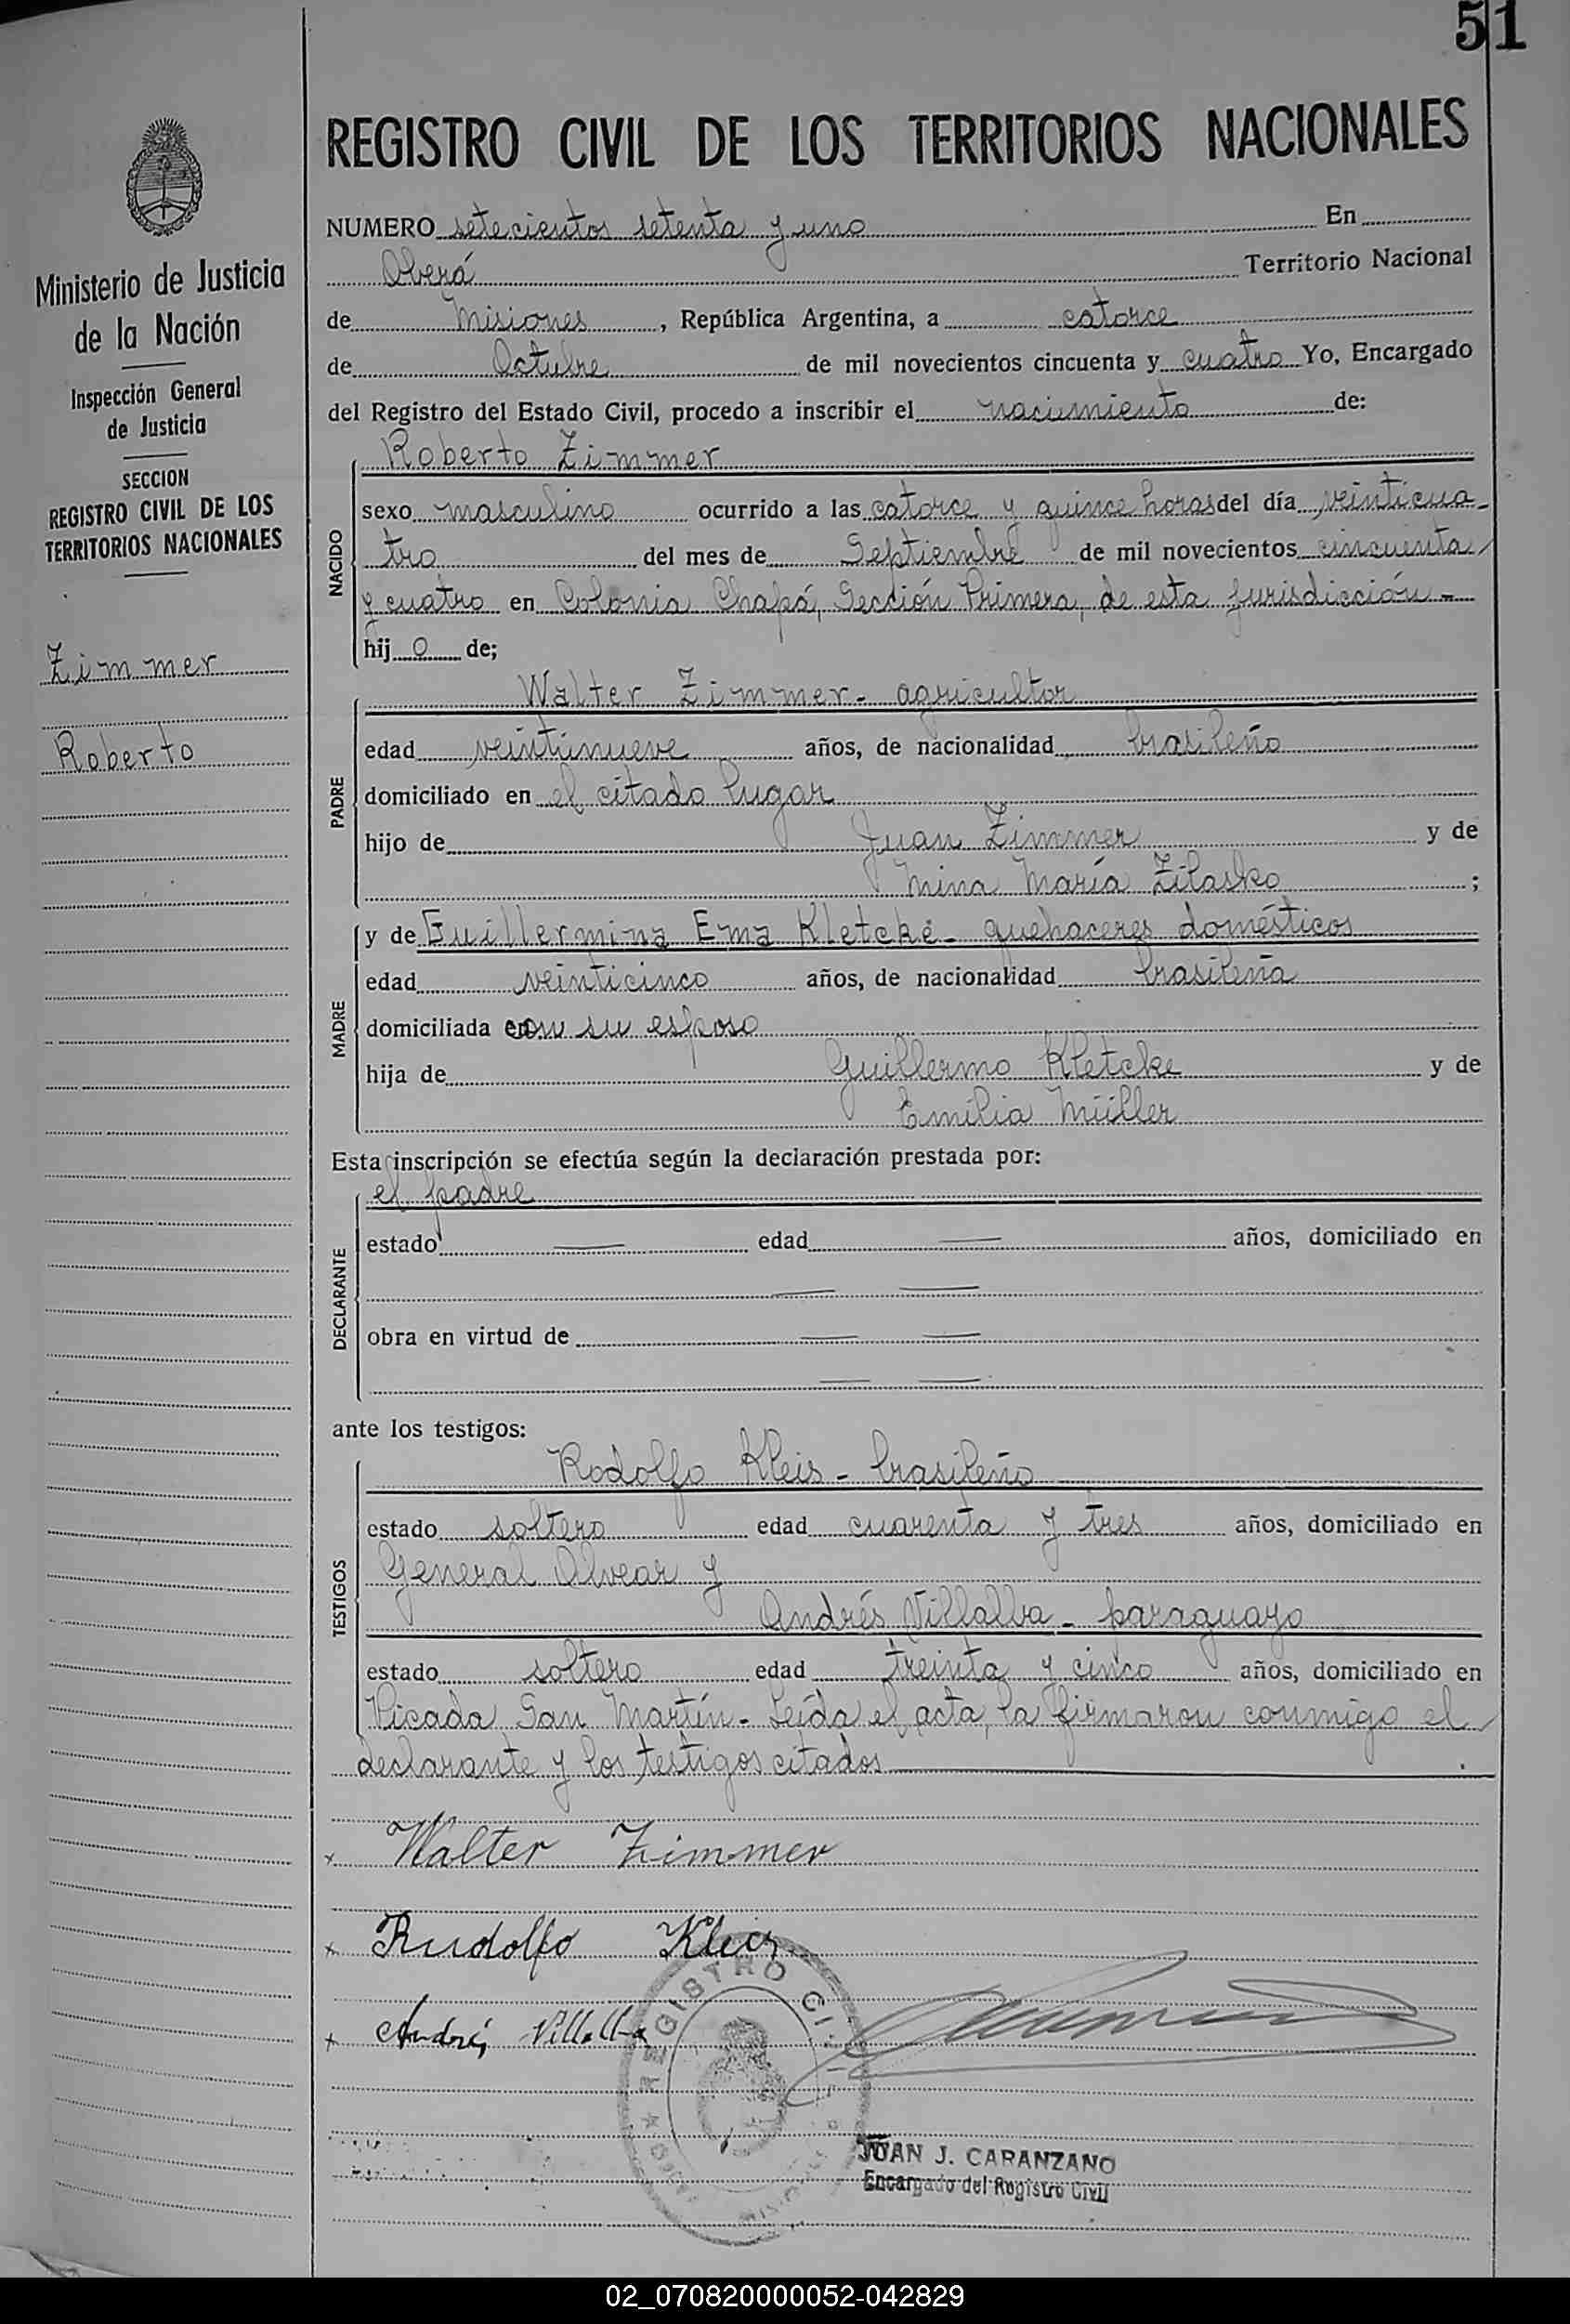 51
REGISTRO CIVIL DE LOS TERRITORIOS NACIONALES
Ministerio de Justicia
de la Nación
Inspección General
de Justicia
SECCION
REGISTRO CIVIL DE LOS
TERRITORIOS NACIONALES
Zimmer
Roberto
NUMERO setecientos setenta y uno En
Oberá Territorio Nacional
de Misiones, República Argentina, a catorce
de Octubre de mil novecientos cincuenta y cuatro Yo, Encargado
del Registro del Estado Civil, procedo a inscribir el nacimiento de:
NACIDO
Roberto Zimmer
sexo masculino ocurrido a las catorce y quince horas del día veinticua-
tro del mes de Septiembre de mil novecientos cincuenta
y cuatro en Colonia Chapá, Sección Primera, de esta jurisdicción-
hijo de;
PADRE
Walter Zimmer- agricultor
edad veintinueve años, de nacionalidad brasileño
domiciliado en el citado lugar
hijo de Juan Zimmer y de
Mina María Zilasko ;
MADRE
y de Guillermina Ema Kletcke- quehaceres domésticos
edad veinticinco años, de nacionalidad brasileña
domiciliada con su esposo
hija de Guillermo Kletcke y de
Emilia Müller
Esta inscripción se efectúa según la declaración prestada por:
DECLARANTE
el padre
estado — edad — años, domiciliado en
— —
obra en virtud de — —
— —
ante los testigos:
TESTIGOS
Rodolfo Kleis- brasileño
estado soltero edad cuarenta y tres años, domiciliado en
General Alvear y
Andrés Villalba- paraguayo
estado soltero edad treinta y cinco años, domiciliado en
Picada San Martín- Leída el acta, la firmaron conmigo el
declarante y los testigos citados
x Walter Zimmer
x Rudolfo
x Andrés Villalba
REGISTRO CIVIL
JUAN J. CARANZANO
Encargado del Registro Civil
02_070820000052-042829